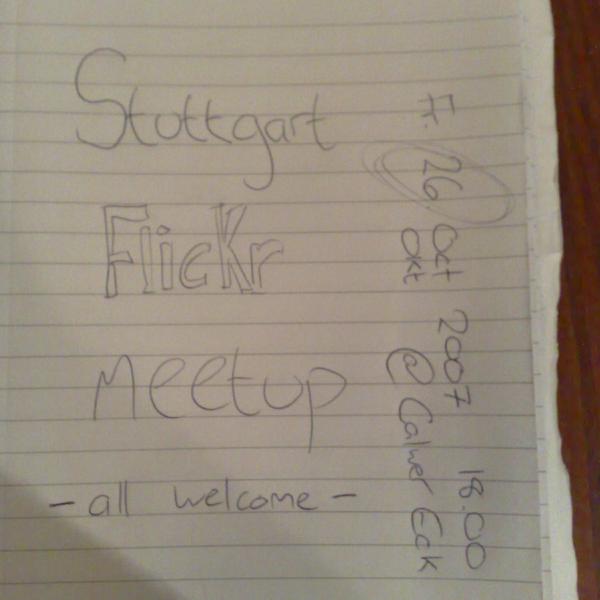 Stuttgart
Flickr
meetup
- all welcome -
F. 26 Oct 2007 18.00
Okt
@ Calwer Eck